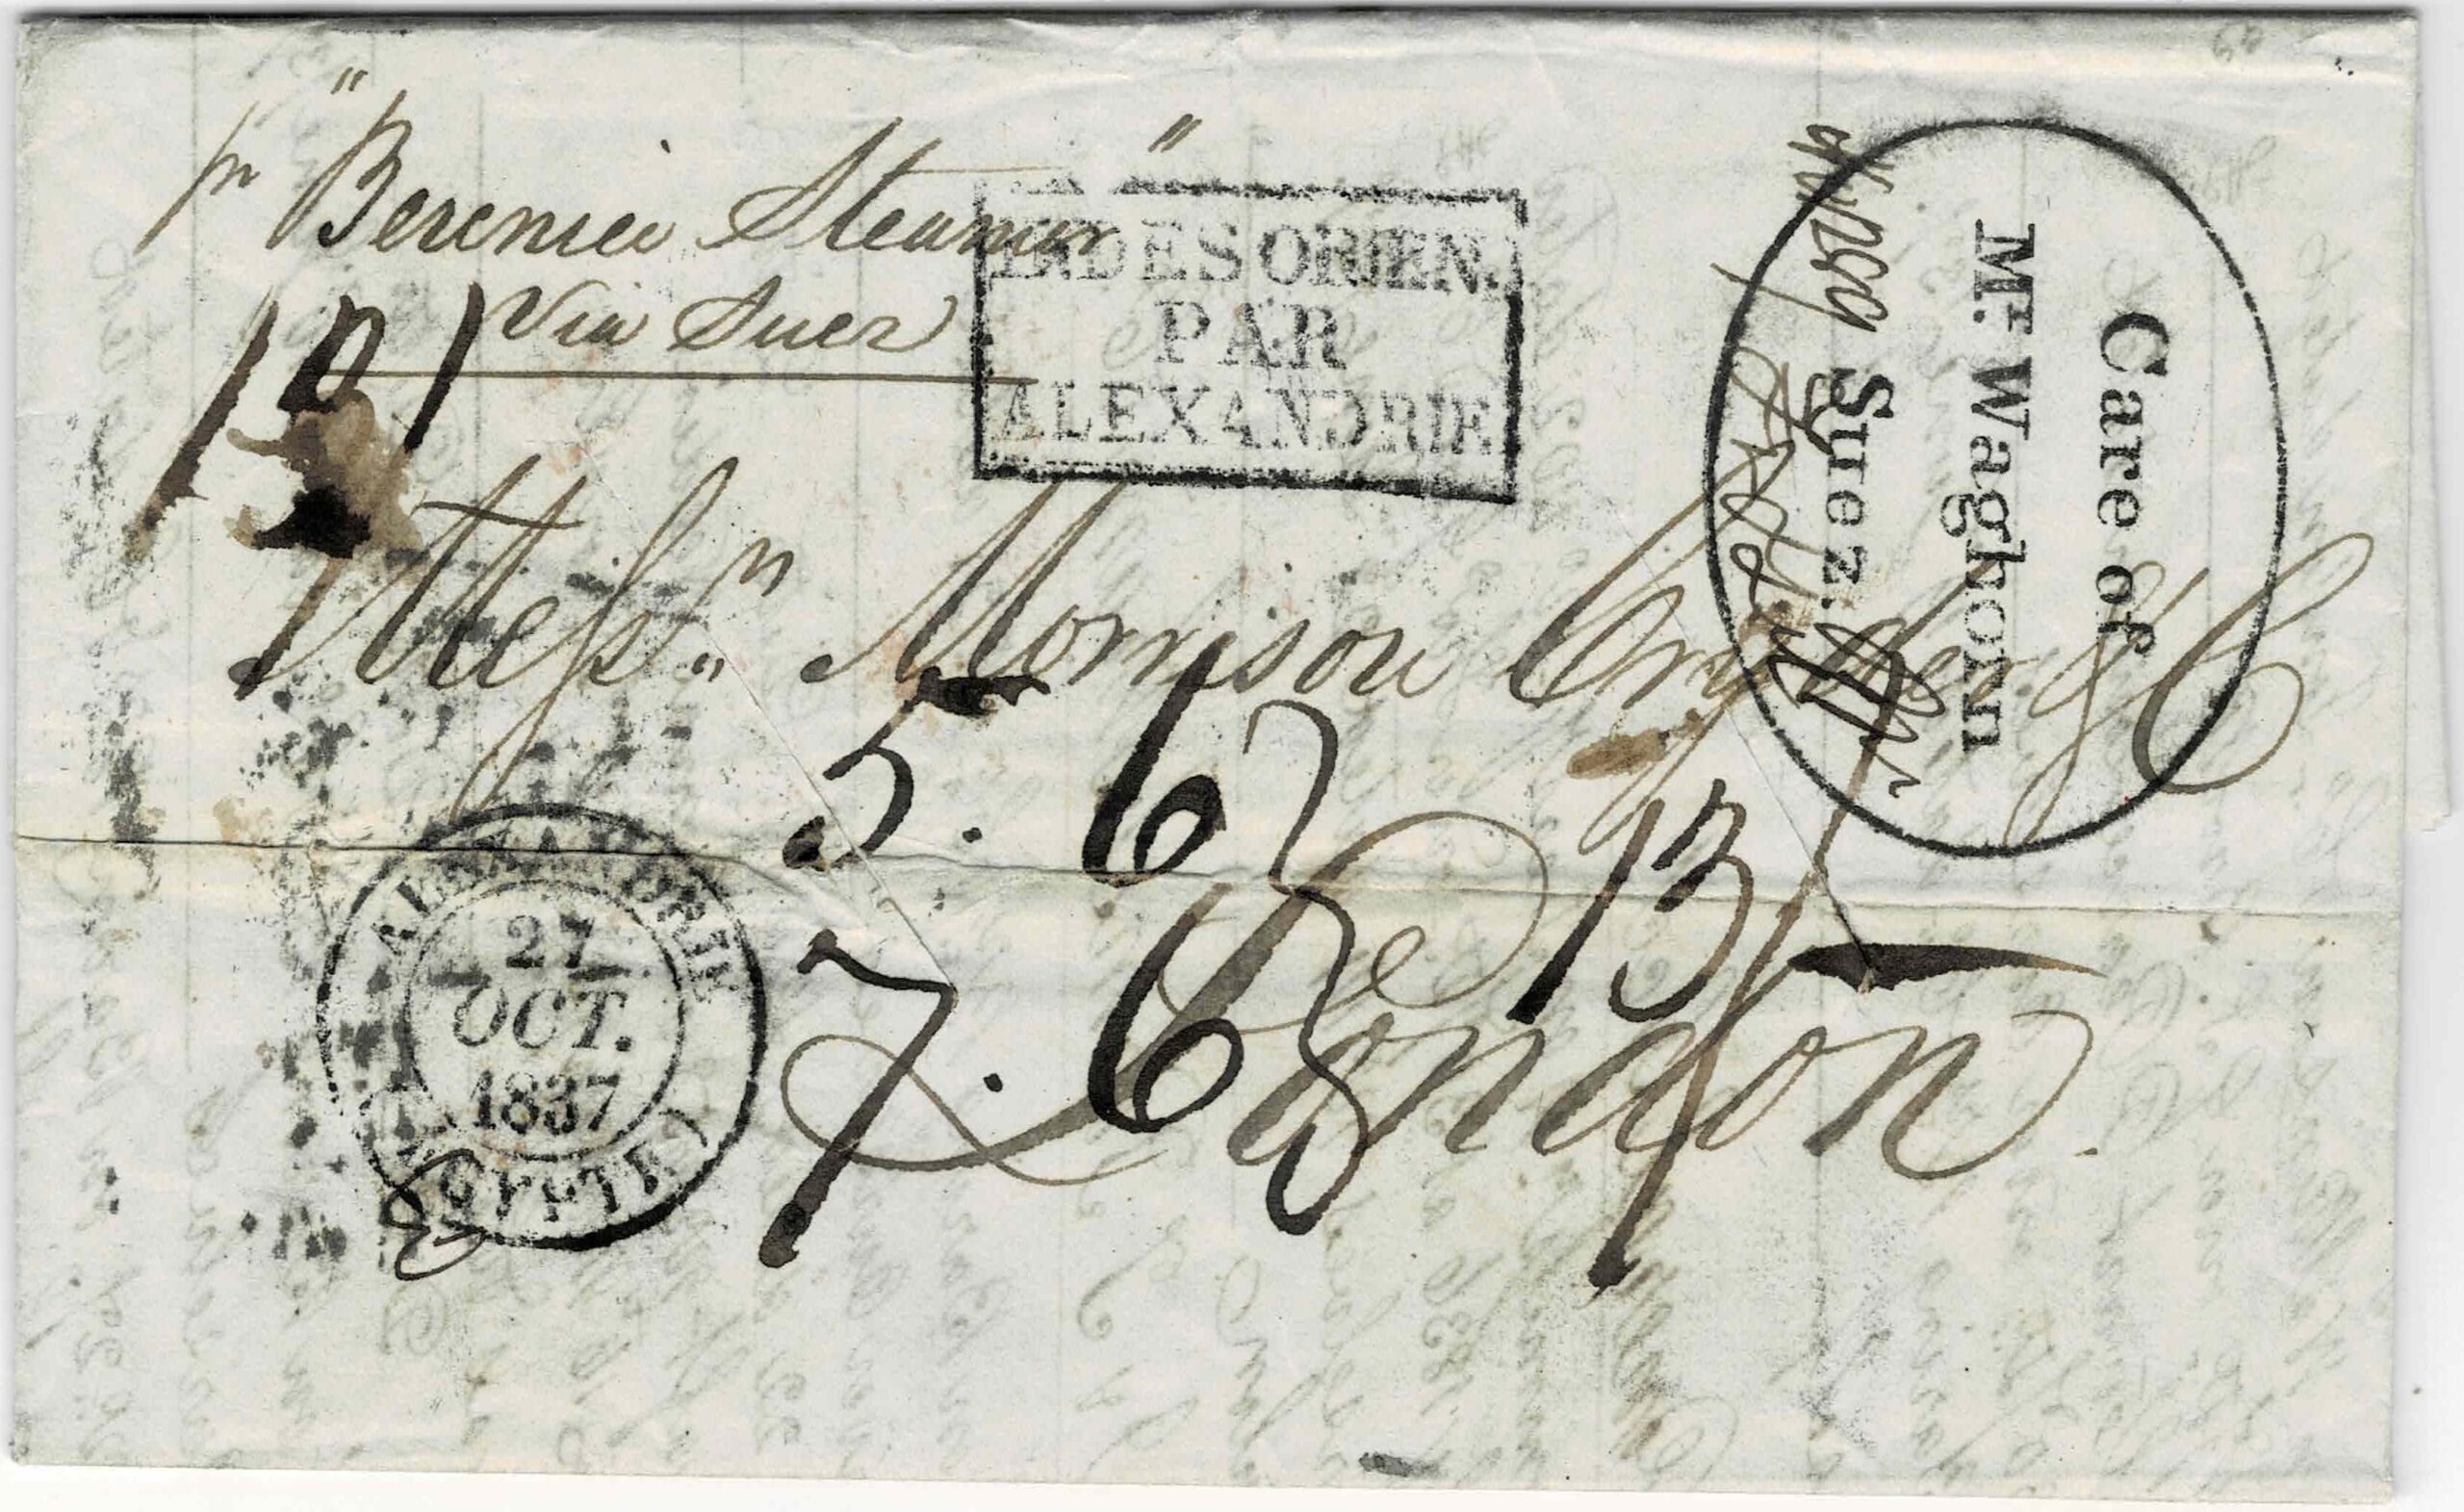 pr "Berenice Steamer"
Via Suez
INDES ORIEN.
PAR
ALEXANDRIE
Care of
Mr. Waghorn
Suez.
Messrs. Morrison Cryder & Co
5. 6
13
7. 6
London.
ALEXANDRIE
27
OCT.
1837
(EGYPTE)